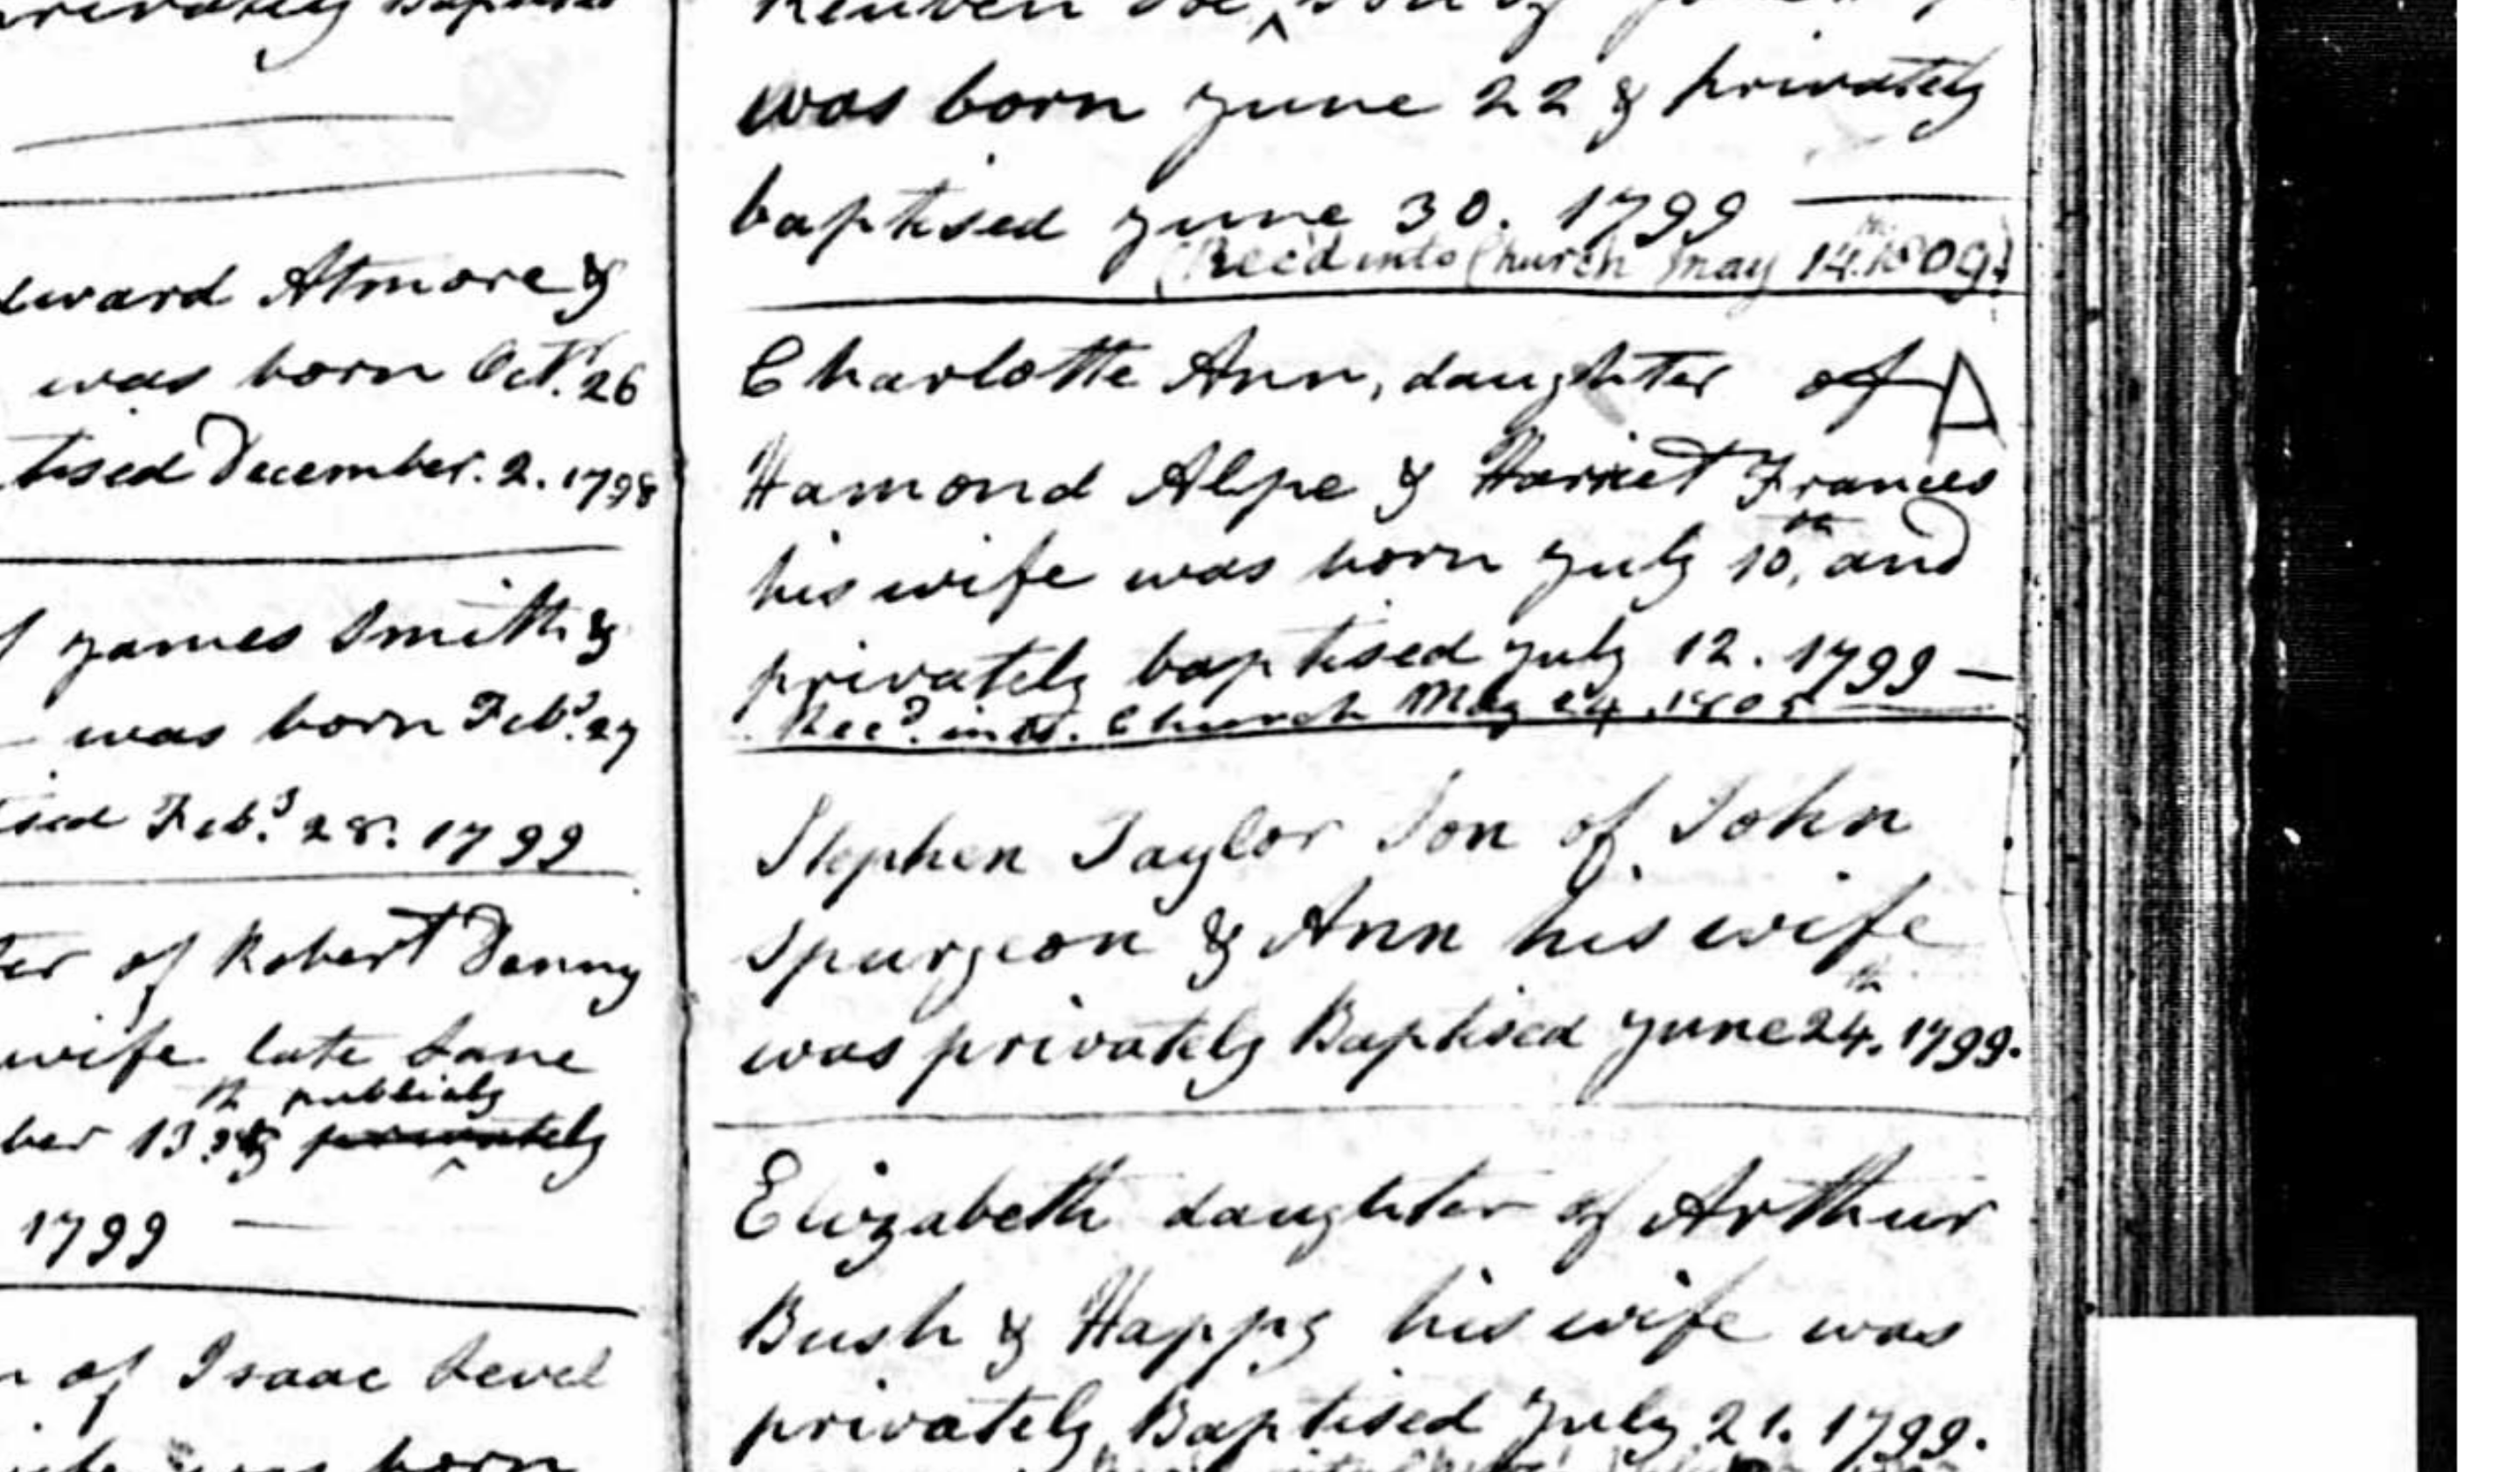 privately Baptised
dward Atmore &
was born Octr. 26
tised December. 2. 1798
f James Smith &
was born Feby. 27
ised Feby. 28. 1799
ter of Robert Denny
wife late Lane
publicly
ber 13th & privately
1799
n of Isaac Level
born
Reuben son of
was born June 22 & privately
baptised June 30. 1799
(Rec'd into Church May 14th. 1809)
Charlotte Ann, daughter of
Hamond Alpe & Harriet Frances
his wife was born July 10th, and
privately baptised July 12. 1799
Recd. into. Church May 24, 1805
Stephen Taylor Son of John
Spurgeon & Ann his wife
was privately Baptised June 24th. 1799.
Elizabeth daughter of Arthur
Bush & Happy his wife was
privately Baptised July 21. 1799.